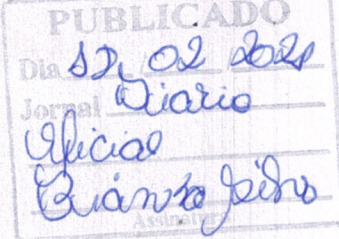 PUBLICADO
Dia 12, 02 2021
Jornal Diario
Oficial
Assinatura